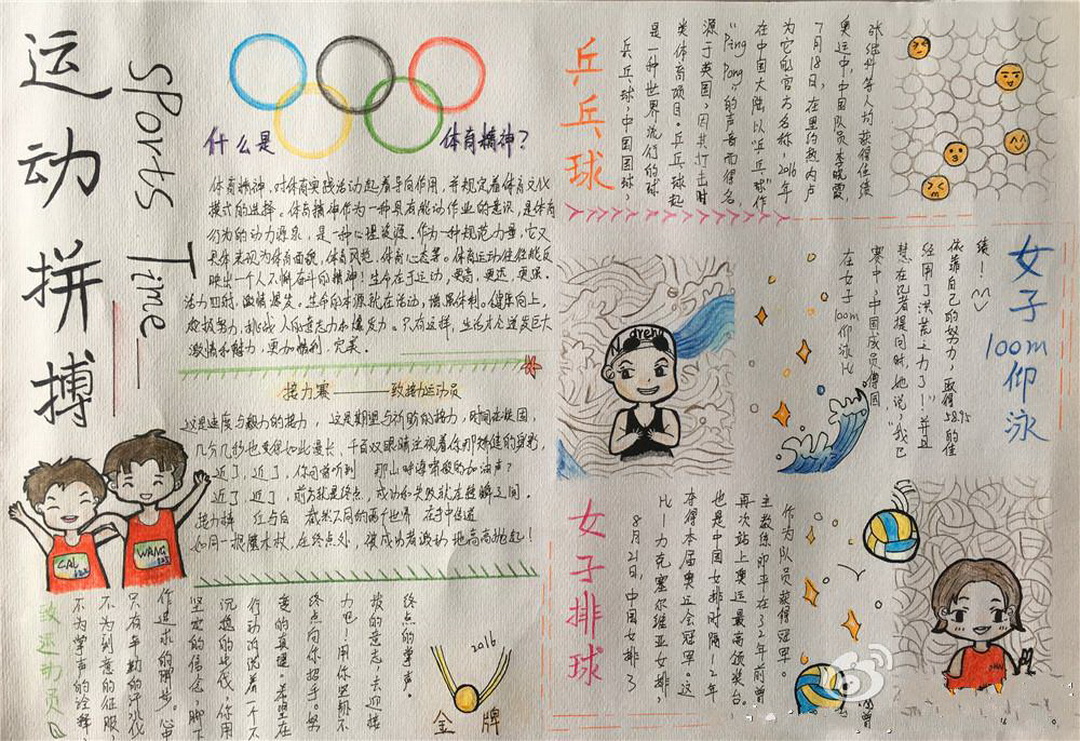 运动拼搏
Sports Time
什么是
体育精神？
体育精神，对体育实践活动起着导向作用，并规定着体育文化
模式的选择。体育精神作为一种具有能动作用的意识，是体育
行为的动力源泉，是一种心理资源。作为一种规范力量，它又
具体表现为体育面貌，体育风范，体育心态等。体育运动往往能反
映出一个人不懈奋斗的精神！生命在于运动，更高，更远，更强。
活力四射，激情爆发。生命的本源就在活动，增强体利。健康向上，
积极努力，挑战人的意志力和爆发力。只有这样，生活才会迸发巨大
激情和魅力，更加精利，完美。
接力赛——致接力运动员
这是速度与毅力的接力，这是期望与祈盼的接力，时间在凝固，
几分几秒也变得如此漫长，千百双眼睛注视着你那矫健的身影，
近了，近了，你可曾听到 那山呼海啸般的加油声？
近了，近了，前方就是终点，成功和失败就在胜瞬之间。
接力棒 红与白 截然不同的两个世界 在手中传递
如同一根魔术杖，在终点处，被成功者激动地高高抛起！
CAI
WANG
致运动员
不为掌声的诠释，
不为刻意的征服
只有辛勤的汗水
作追求的脚步。心中
坚定的信念，脚下
沉稳的步伐，你用
行动诉说着一个不
变的真理。希望在
终点向你招手。努
力吧！用你坚韧不
拔的意志，去迎接
终点的掌声。
2016
金牌
乒乓球
乒乓球，中国国球，
是一种世界流行的球
类体育项目。乒乓球起
源于英国，因其打击时
"Ping Pong"的声音而得名。
在中国大陆以"乒乓球"作
为它的官方名称，2016年
7月18日，在里约热内卢
奥运中，中国队员李晓霞，
张继科等人均获得佳绩
女子100m仰泳
在女子100m仰泳比
赛中，中国成员傅园
慧在记者提问时，她说："我已
经用了洪荒之力了！"并且
依靠自己的努力，取得58.95的佳
绩！
女子排球
8月21日，中国女排3
比1力克塞尔维亚女排，
夺得本届奥运会冠军。这
也是中国女排时隔12年
再次站上奥运最高领奖台。
主教练郎平在32年前曾
作为队员获得冠军。